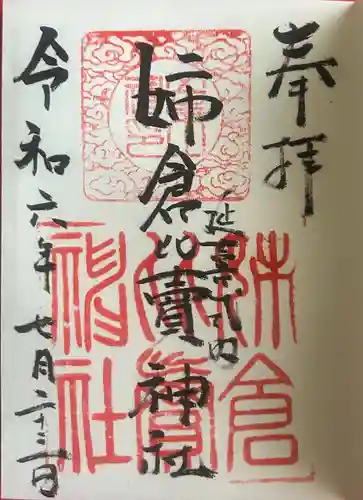 奉拝
延喜式内
姉倉比賣神社
令和六年七月二十三日
姉倉比賣神社